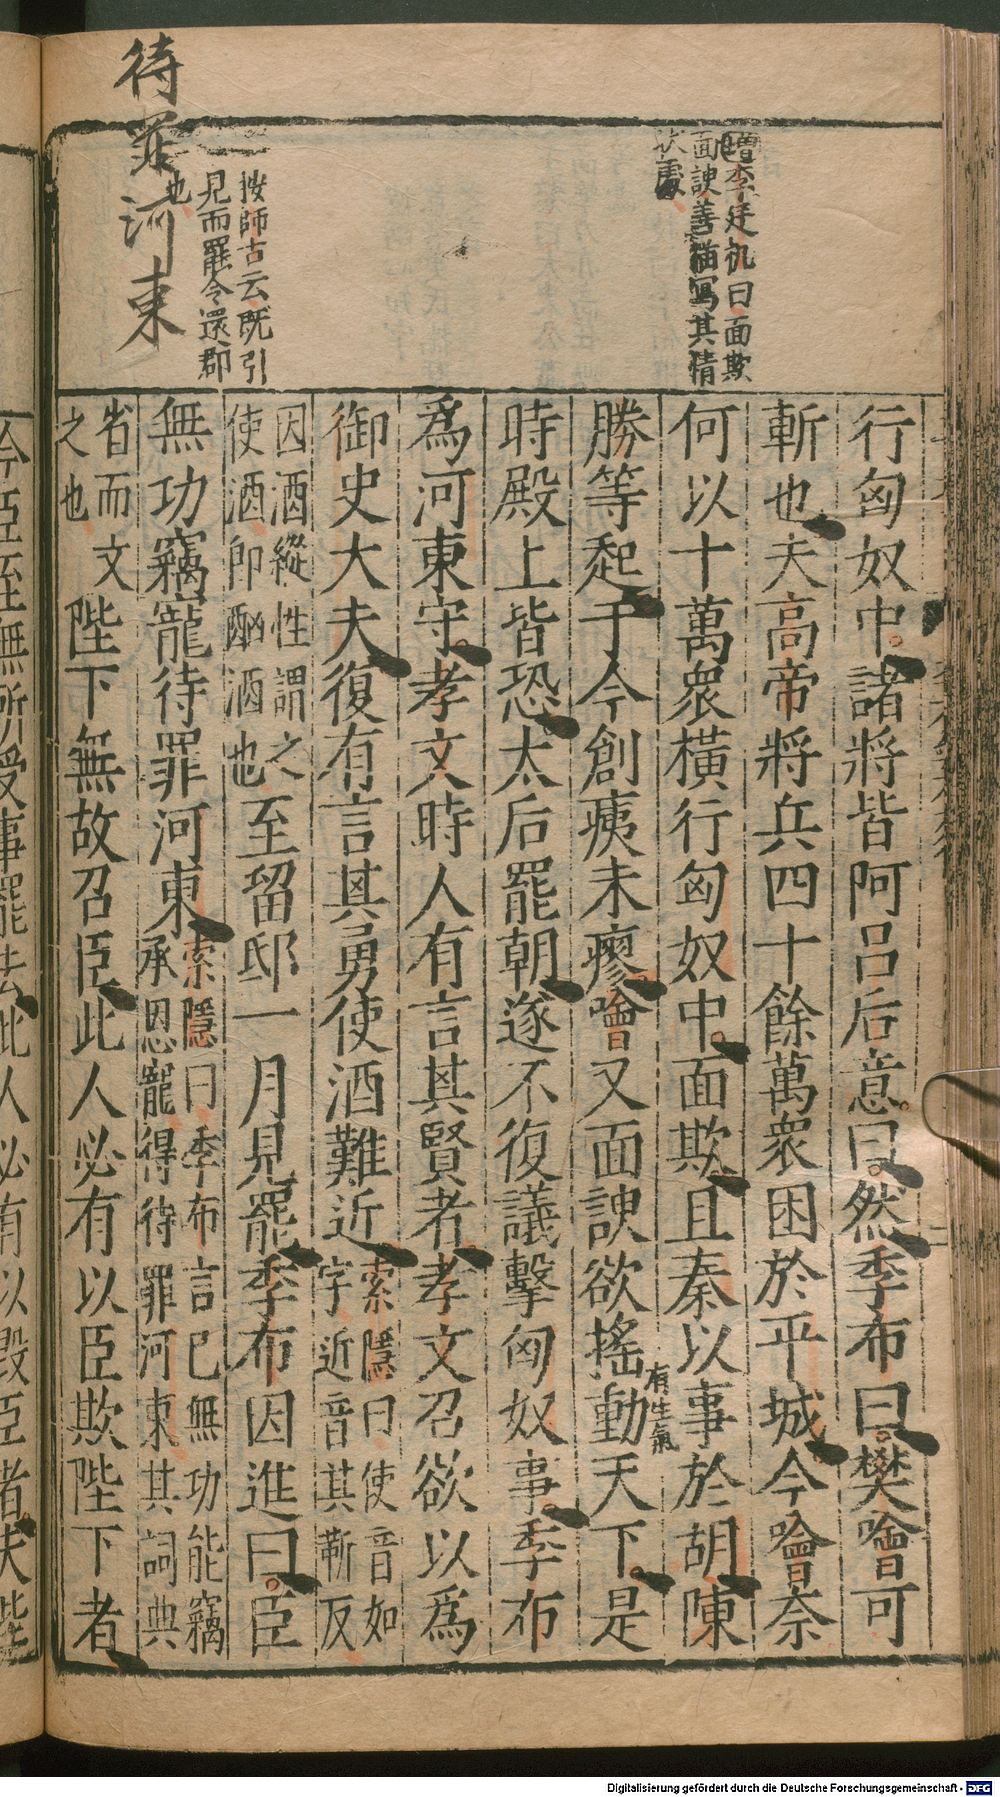 增李廷机曰面欺
面諛善描寫其情
狀處
按師古云旣引
見而罷令還郡
也
待罪河東
行匈奴中諸將皆阿呂后意曰然季布曰樊噲可
斬也夫高帝將兵四十餘萬衆困於平城今噲奈
何以十萬衆橫行匈奴中面欺且秦以事於胡陳
有生氣
勝等起于今創痍未瘳噲又面諛欲搖動天下是
時殿上皆恐太后罷朝遂不復議擊匈奴事季布
爲河東守孝文時人有言其賢者孝文召欲以爲
御史大夫復有言其勇使酒難近索隱曰使音如
字近音其靳反
因酒縱性謂之
使酒卽酗酒也至留邸一月見罷季布因進曰臣
無功竊寵待罪河東索隱曰季布言已無功能竊
承恩寵得待罪河東其詞典
省而文
之也陛下無故召臣此人必有以臣欺陛下者
今臣至無所受事罷去此人必有以毀臣者夫陛
Digitalisierung gefördert durch die Deutsche Forschungsgemeinschaft - DFG